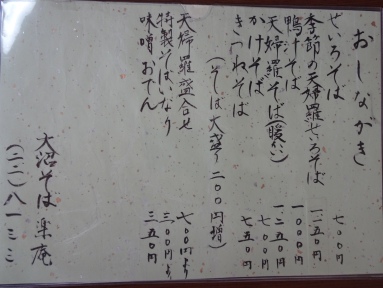 おしながき
せいろそば 七〇〇円
季節の天婦羅せいろそば 一一五〇円
鴨汁そば 一〇〇〇円
天婦羅そば(暖かい) 一二五〇円
かけそば 七〇〇円
きつねそば 七五〇円
(そば大盛り二〇〇円増)
天婦羅盛合せ 七〇〇円より
特製そばいなり 三〇〇円より
味噌おでん 三五〇円
大沼そば 楽庵
(二二)八一三三